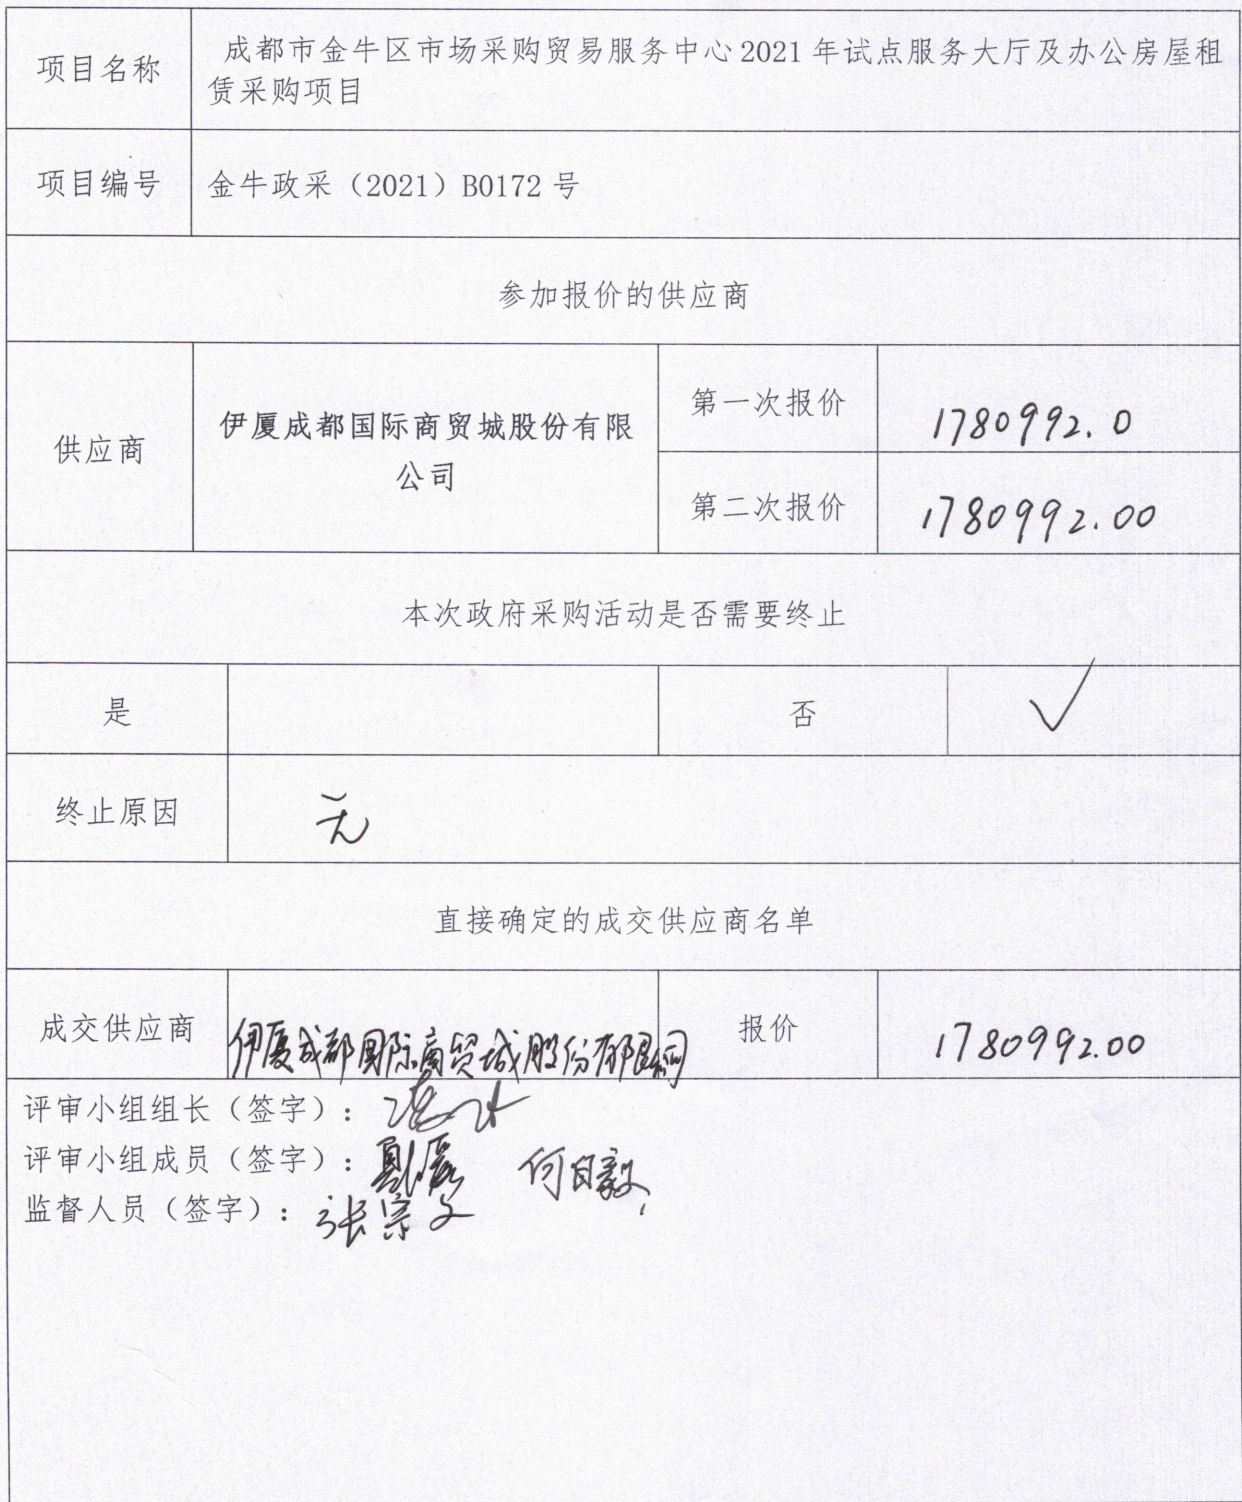 项目名称
成都市金牛区市场采购贸易服务中心2021年试点服务大厅及办公房屋租
赁采购项目
项目编号
金牛政采（2021）B0172号
参加报价的供应商
供应商
伊厦成都国际商贸城股份有限
公司
第一次报价
1780992.0
第二次报价
1780992.00
本次政府采购活动是否需要终止
是
否 √
终止原因
无
直接确定的成交供应商名单
成交供应商
伊厦成都国际商贸城股份有限公司
报价
1780992.00
评审小组组长（签字）：
评审小组成员（签字）： 何自毅
监督人员（签字）： 张宗文